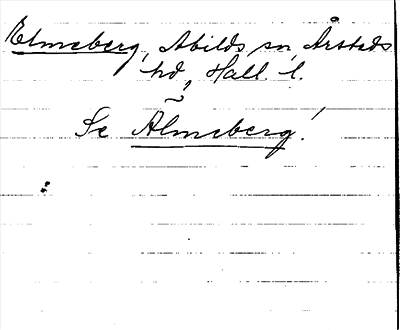 Elmeberg, Abilds sn, Årstads
hd, Hall. l.
Se Älmeberg!